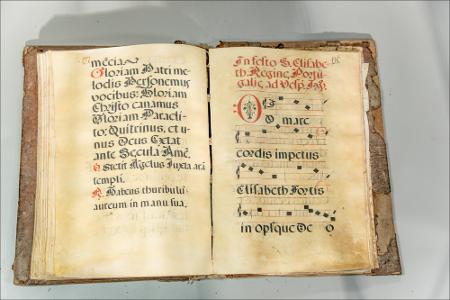 mecia
Gloriam Patri me
lodis Personemus
vocibus: Gloriam
Christo canamus
Gloriam Paracli
to: Qui trinus, et u
nus Deus Extat
ante Sæcula Amē.
Stetit Angelus Iuxta arā
templi.
Habens thuribulū
aureum in manu sua.
In festo S. Elisabe
th Reginę Portu
galię, ad Vesp̄.
Domare
cordis impetus
Elisabeth Fortis
inopsque Deo